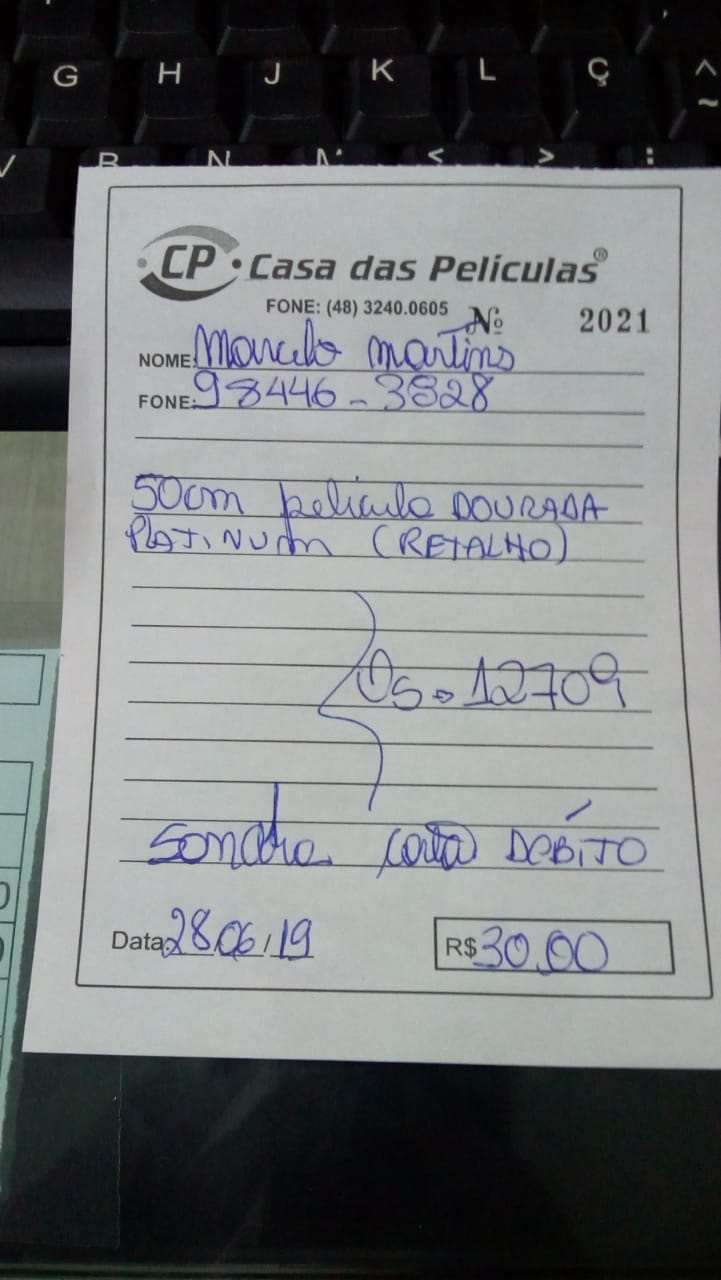 G H J K L Ç ^ ~
V B N M < > :
CP Casa das Películas®
FONE: (48) 3240.0605 Nº 2021
NOME: Marcelo Martins
FONE: 98446-3828
50cm película DOURADA
PLATINUM (RETALHO)
OS. 12709
Sandra DEBITO
Data 28/06/19 R$ 30,00